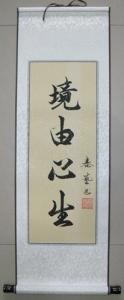 境由心生